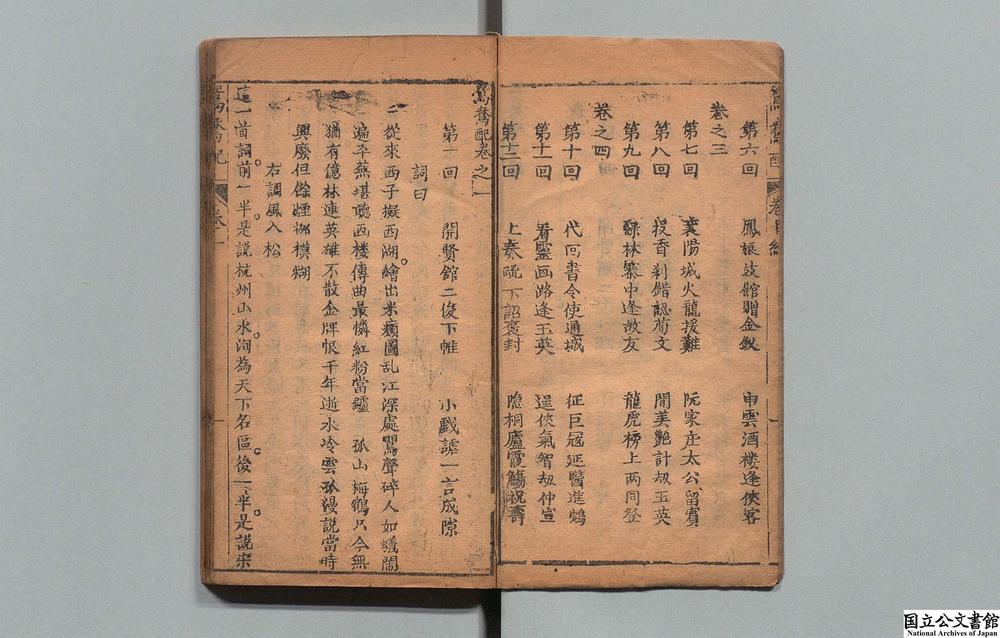 第六回 鳳娘鼓館贈金釵 申雲酒樓逢俠客
卷之三
第七回 襄陽城火龍援難 阮家庄太公留賓
第八回 投香刹錯認荀文 聞美艷計刼玉英
第九回 綠林寨中逢故友 龍虎榜上两同登
卷之四
第十回 代回書令使通城 征巨冦延醫進鴆
第十一回 看靈画路逢玉英 逞俠氣智刼仲宣
第十二回 上奏疏下詔褒封 隐桐廬霞觴祝壽
鴛鴦配卷之一
第一回 開賢館二俊下帷 小戲謔一言成隙
詞曰
從來西子擬西湖繪出米癲圖乱江深處鶯聲碎人如蟻閙
遍平蕪堪聽西樓傳曲最憐紅粉當鑪 孤山梅鶴只今無
猶有億林連英雄不散金牌恨千年逝水冷雲孤漫説當時
興廢但餘煙栁模糊
右調風入松
這一首詞前一半是說杭州山水洵為天下名區後一半是説宋
卷一
国立公文書館
National Archives of Japan